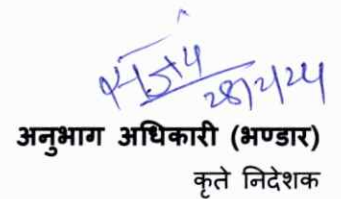 28/2/24
अनुभाग अधिकारी (भण्डार)
कृते निदेशक